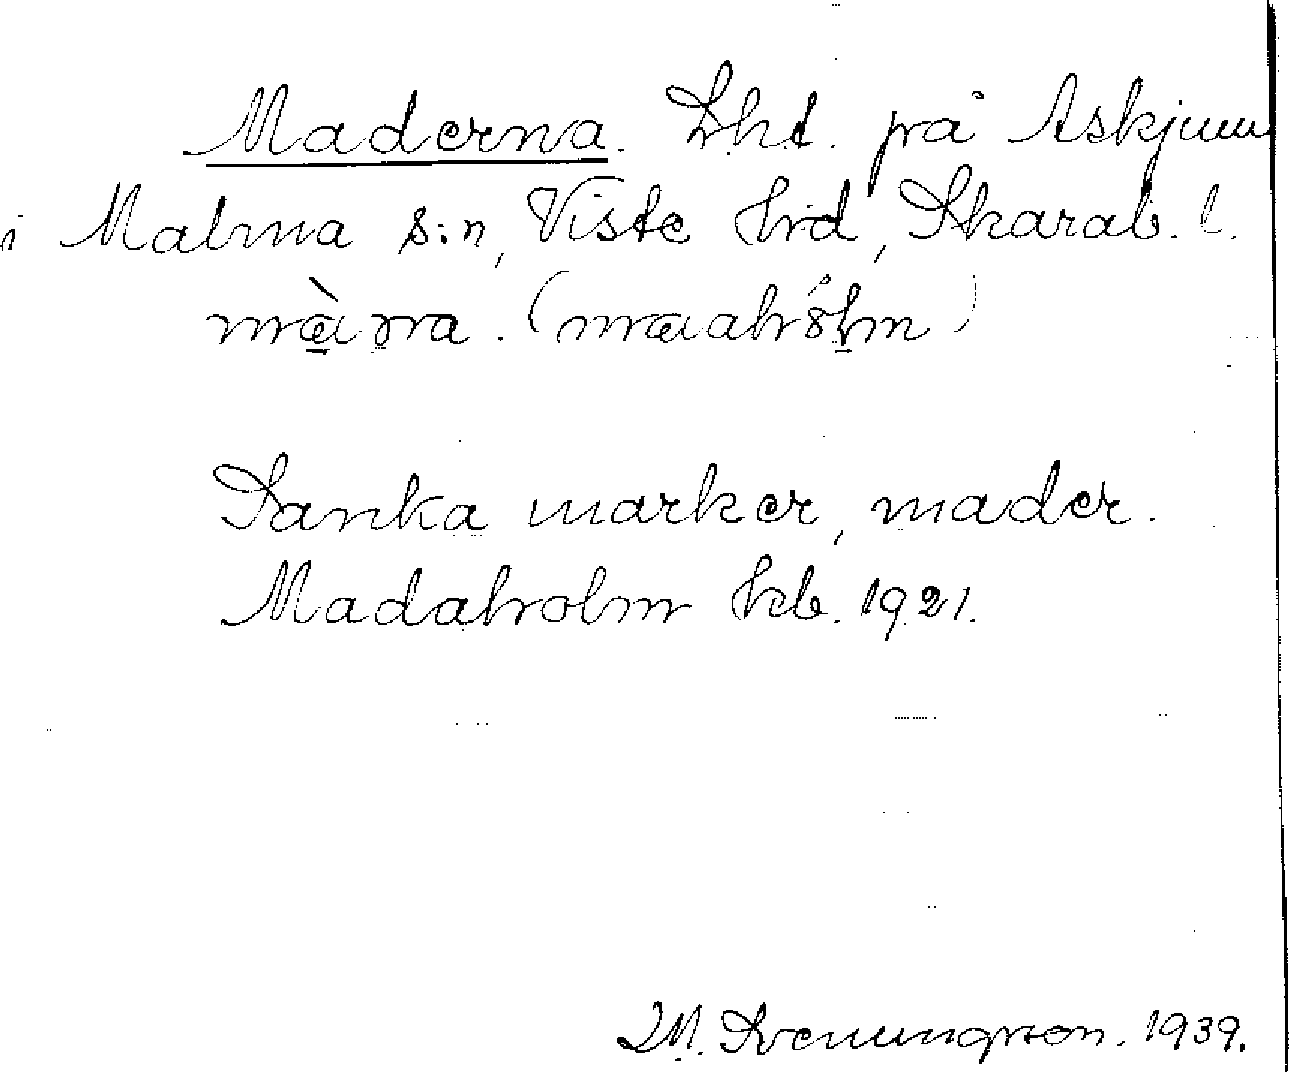 Maderna. Lht. på Askjum
i Malma s:n, Viste hrd, Skarab. l.
màrna. (maahólm)
Sanka marker, mader.
Madaholm kb. 1921.
M. Svenungsson. 1939.